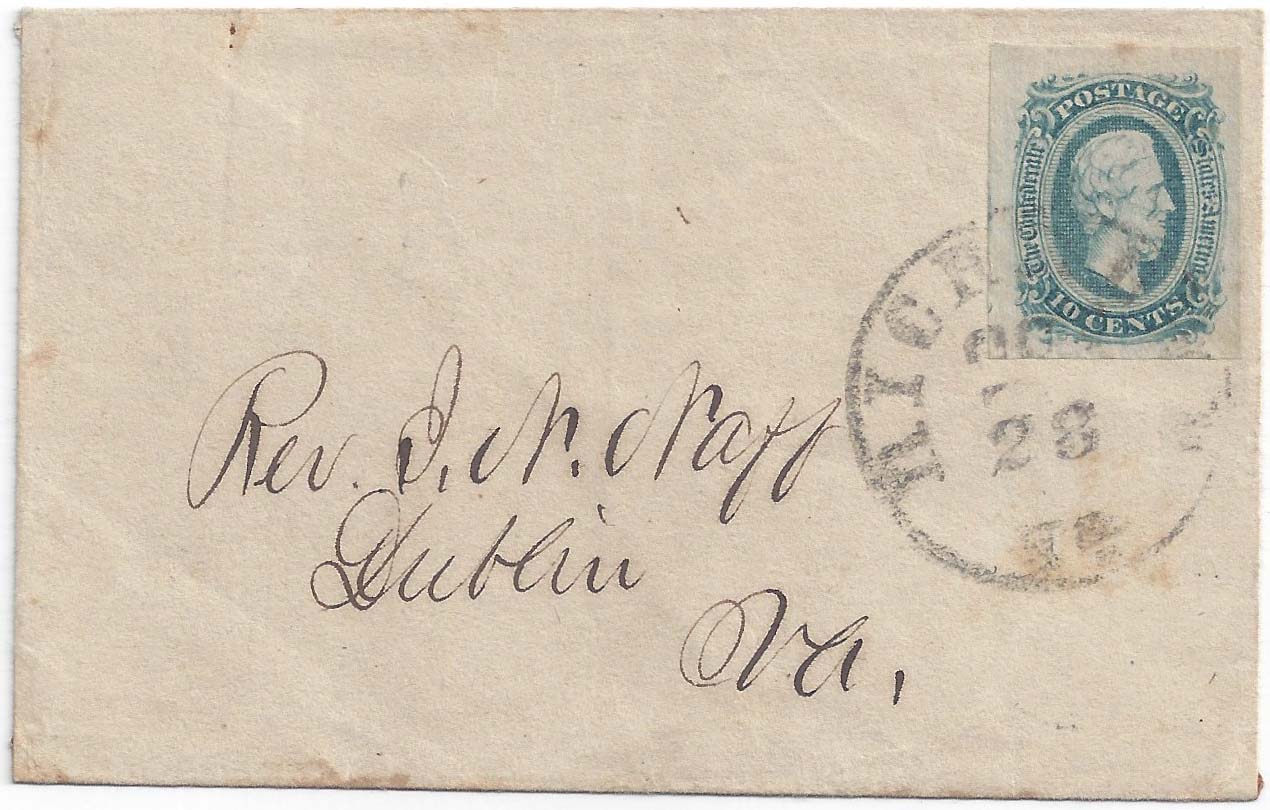 POSTAGE
The Confederate States of America
10 CENTS
RICH
28
Va
Rev. J. N. Naff
Dublin
Va.